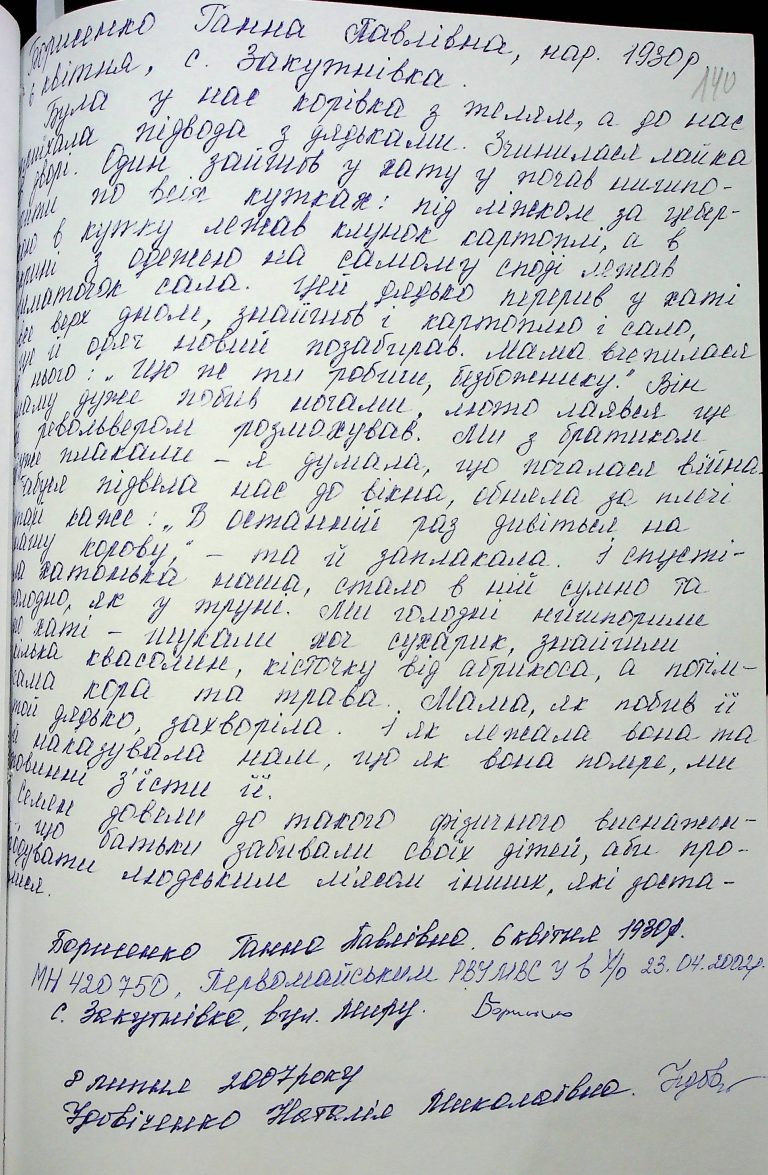 Борисенко Ганна Павлівна, нар. 1930р
6 квітня, с. Закутнівка.
140
Була у нас корівка з телям, а до нас
приїхала підвода з дядьками. Зчинилася лайка
у дворі. Один зайшов у хату у почав нишпо-
рити по всіх кутках: під ліжком за цебер-
кою в кутку лежав клунок картоплі, а в
скрині з одежею на самому споді лежав
шматочок сала. Цей дядько перерив у хаті
все верх дном, знайшов і картоплю і сало,
ще й одяг новий позабирав. Мама вчепилася
в нього: „Що ж ти робиш, безбожнику." Він
маму дуже побив ногами, люто лаявся ще
й револьвером розмахував. Ми з братиком
дуже плакали – я думала, що почалася війна.
Бабуся підвела нас до вікна, обняла за плечі
та й каже: „В останній раз дивіться на
нашу корову," – та й заплакала. І спусті-
ла хатонька наша, стало в ній сумно та
холодно, як у труні. Ми голодні нишпорили
по хаті – шукали хоч сухарик, знайшли
кілька квасолин, кісточку від абрикоса, а потім–
сама кора та трава. Мама, як побив її
той дядько, захворіла. І як лежала вона та
й наказувала нам, що як вона помре, ми
повинні з'їсти її.
Селян довели до такого фізичного виснажен-
що батьки забивали своїх дітей, аби про-
годувати людським м'ясом інших, які зоста-
лися.
Борисенко Ганна Павлівна. 6 квітня 1930р.
МН 420750, Первомайським РВУМВС У в Х/о 23.04.2002р.
с. Закутнівка, вул. Миру.
8 липня 2007 року
Удовіченко Наталія Миколаївна.